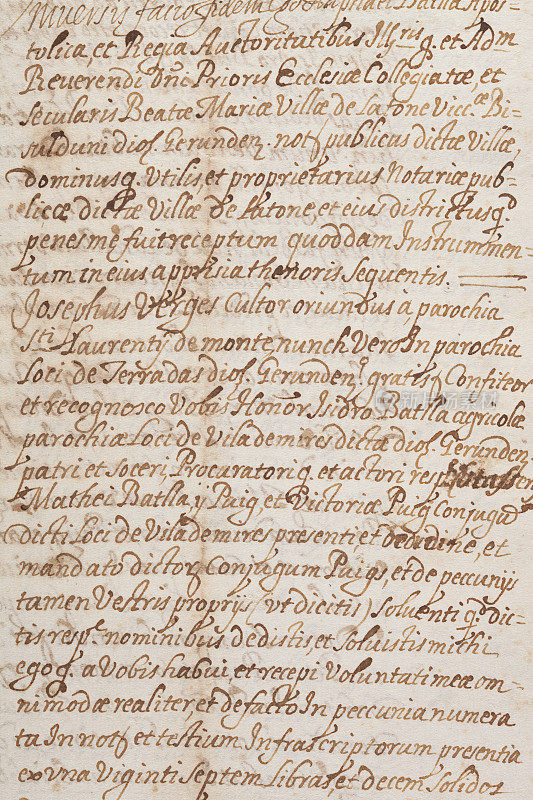 facio fidem
tolica, et Regia Auctoritatibus Illris q. et Adm
Reverendi Dnc Prioris Ecclesiæ Collegiatæ, et
secularis Beatæ Mariæ Villæ de Latone Vicc.æ Bi=
sulduni dios. Gerunden. not publicus dictæ Villæ,
dominusq. Utilis, et proprietarius Notariæ pub=
licæ dictæ Villæ de Latone, et eius districtus q.d
penes me fuit receptum quoddam Instrummen-
tum in eius apprisia thenoris sequentis.
Josephus Verges Cultor oriundus a, parochia
Sti Laurentij de monte nunch vero In parochia
Loci de Terradas dios. Gerunden. gratis, Confiteor
et recognosco Vobis Honor. Isidro Batlla agricolæ
parochiæ Loci de Vilademires dictæ dios. Gerunden.
patri et soceri, Procuratori q. et actori resp.
Mathei Batlla, y Puig, et Victoriæ Puig Conjugu
dicti Loci de Vilademires presenti et de ordine, et
mandato dictor. Conjugum Puigs, et de peccunijs
tamen Vestris proprijs (ut dicitis) solventi q. dic-
tis resp. nominibus dedistis, et solvistis michi
ego q. a Vobis habui, et recepi Voluntati meæ om-
nimodæ realiter, et de facto In peccunia numera
ta In not et testium Infrascriptorum presentia
ex una Viginti septem libras, et decem solidos